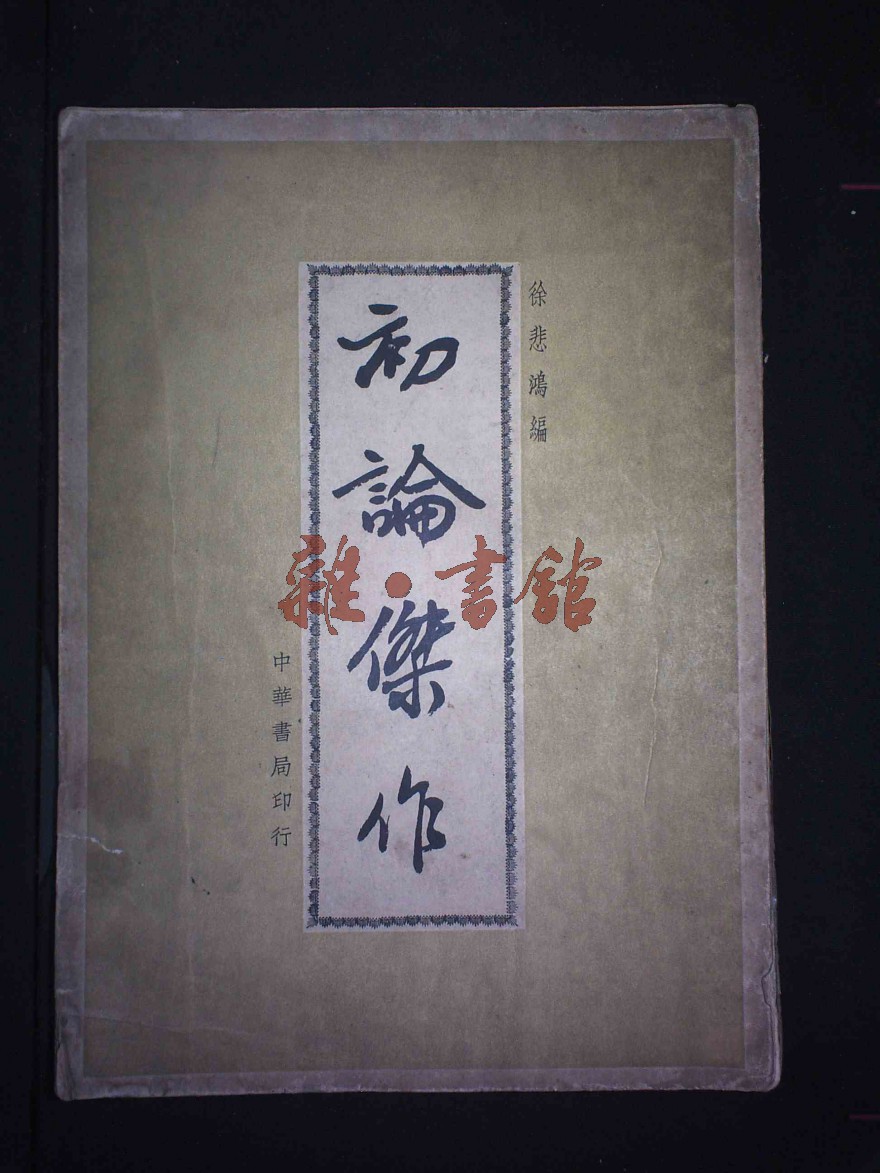 徐悲鴻編
初論傑作
中華書局印行
雜·書館